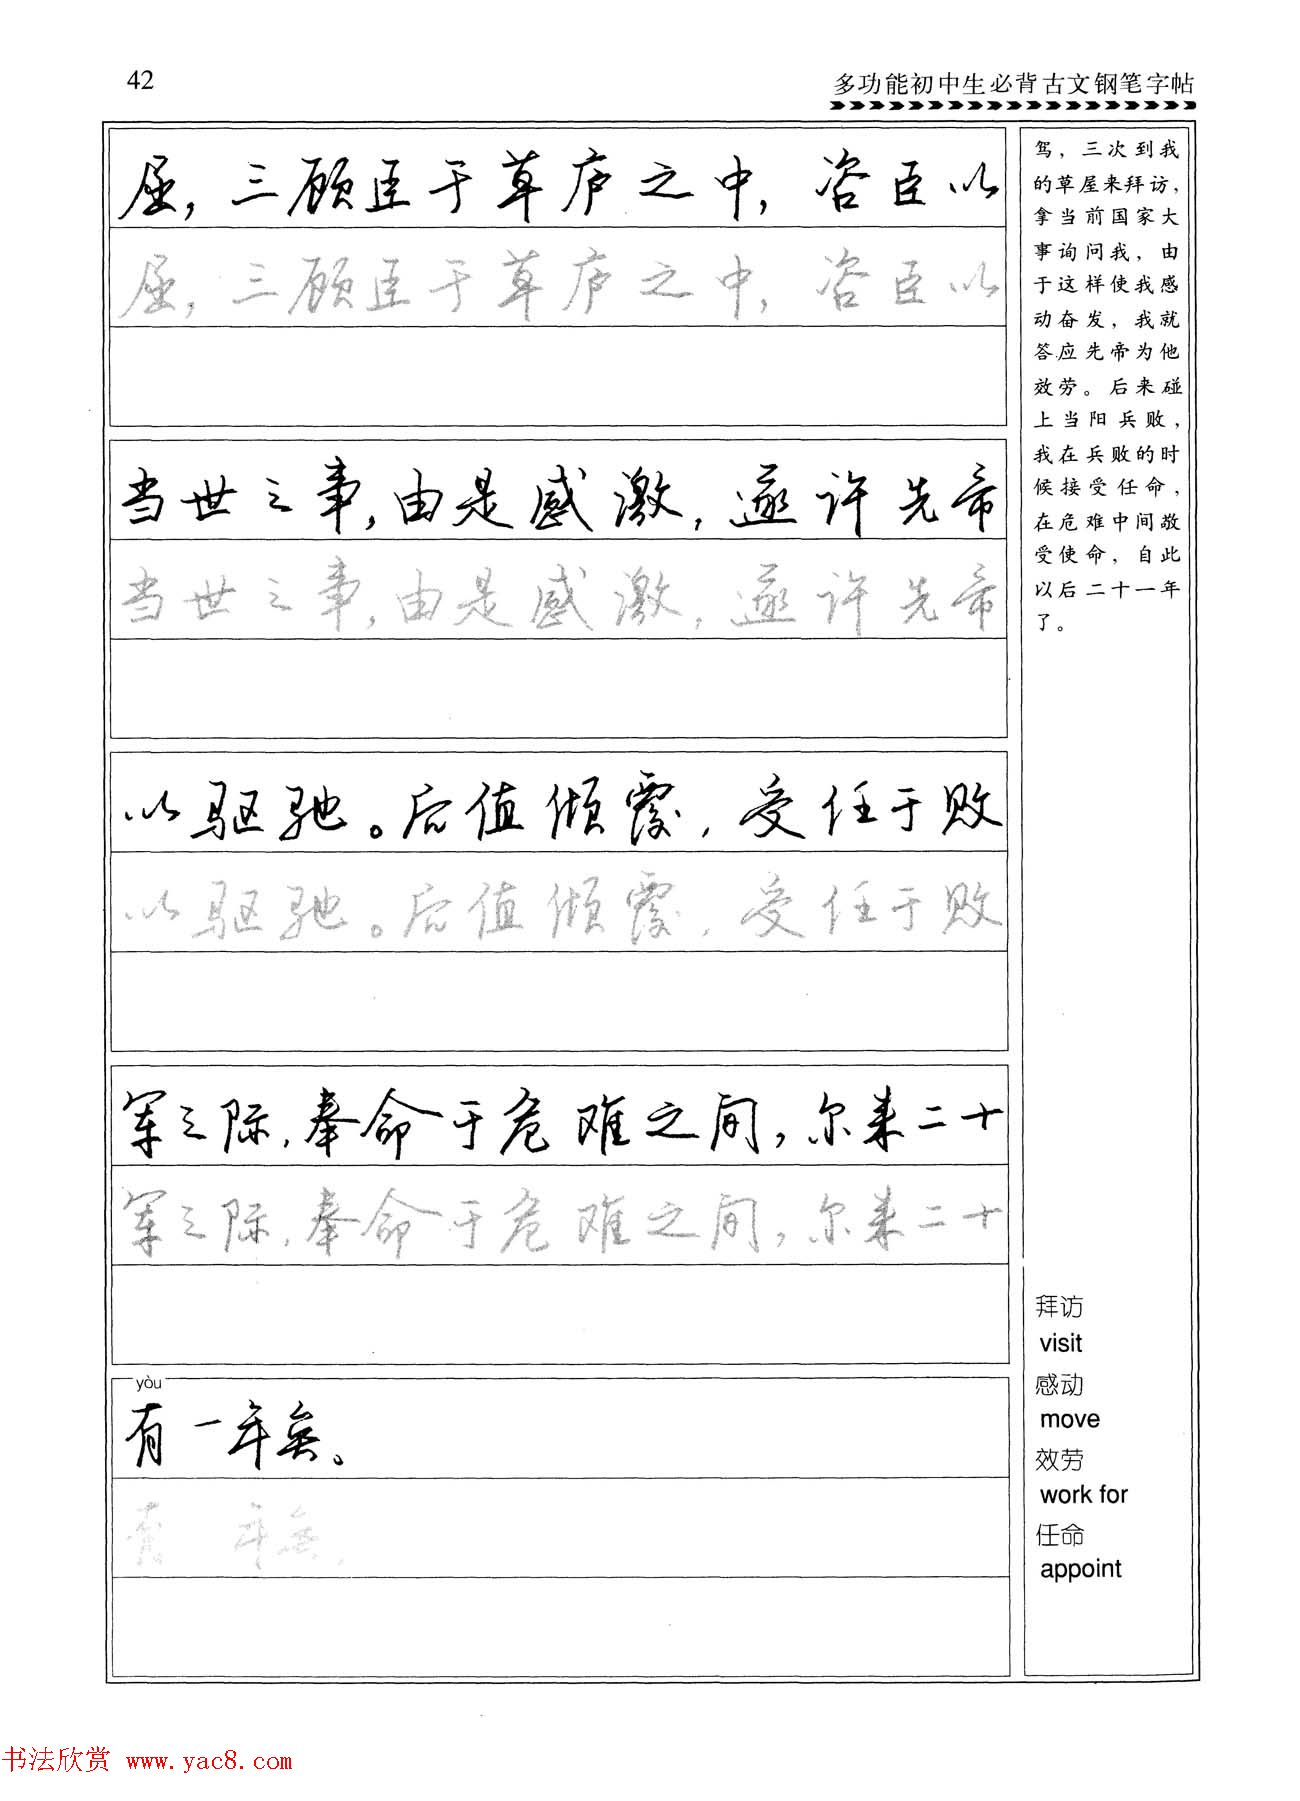 42
多功能初中生必背古文钢笔字帖
屈，三顾臣于草庐之中，咨臣以
屈，三顾臣于草庐之中，咨臣以
当世之事，由是感激，遂许先帝
当世之事，由是感激，遂许先帝
以驱驰。后值倾覆，受任于败
以驱驰。后值倾覆，受任于败
军之际，奉命于危难之间，尔来二十
军之际，奉命于危难之间，尔来二十
yòu
有一年矣。
有一年矣。
驾，三次到我
的草屋来拜访，
拿当前国家大
事询问我，由
于这样使我感
动奋发，我就
答应先帝为他
效劳。后来碰
上当阳兵败，
我在兵败的时
候接受任命，
在危难中间敬
受使命，自此
以后二十一年
了。
拜访
visit
感动
move
效劳
work for
任命
appoint
书法欣赏 www.yac8.com